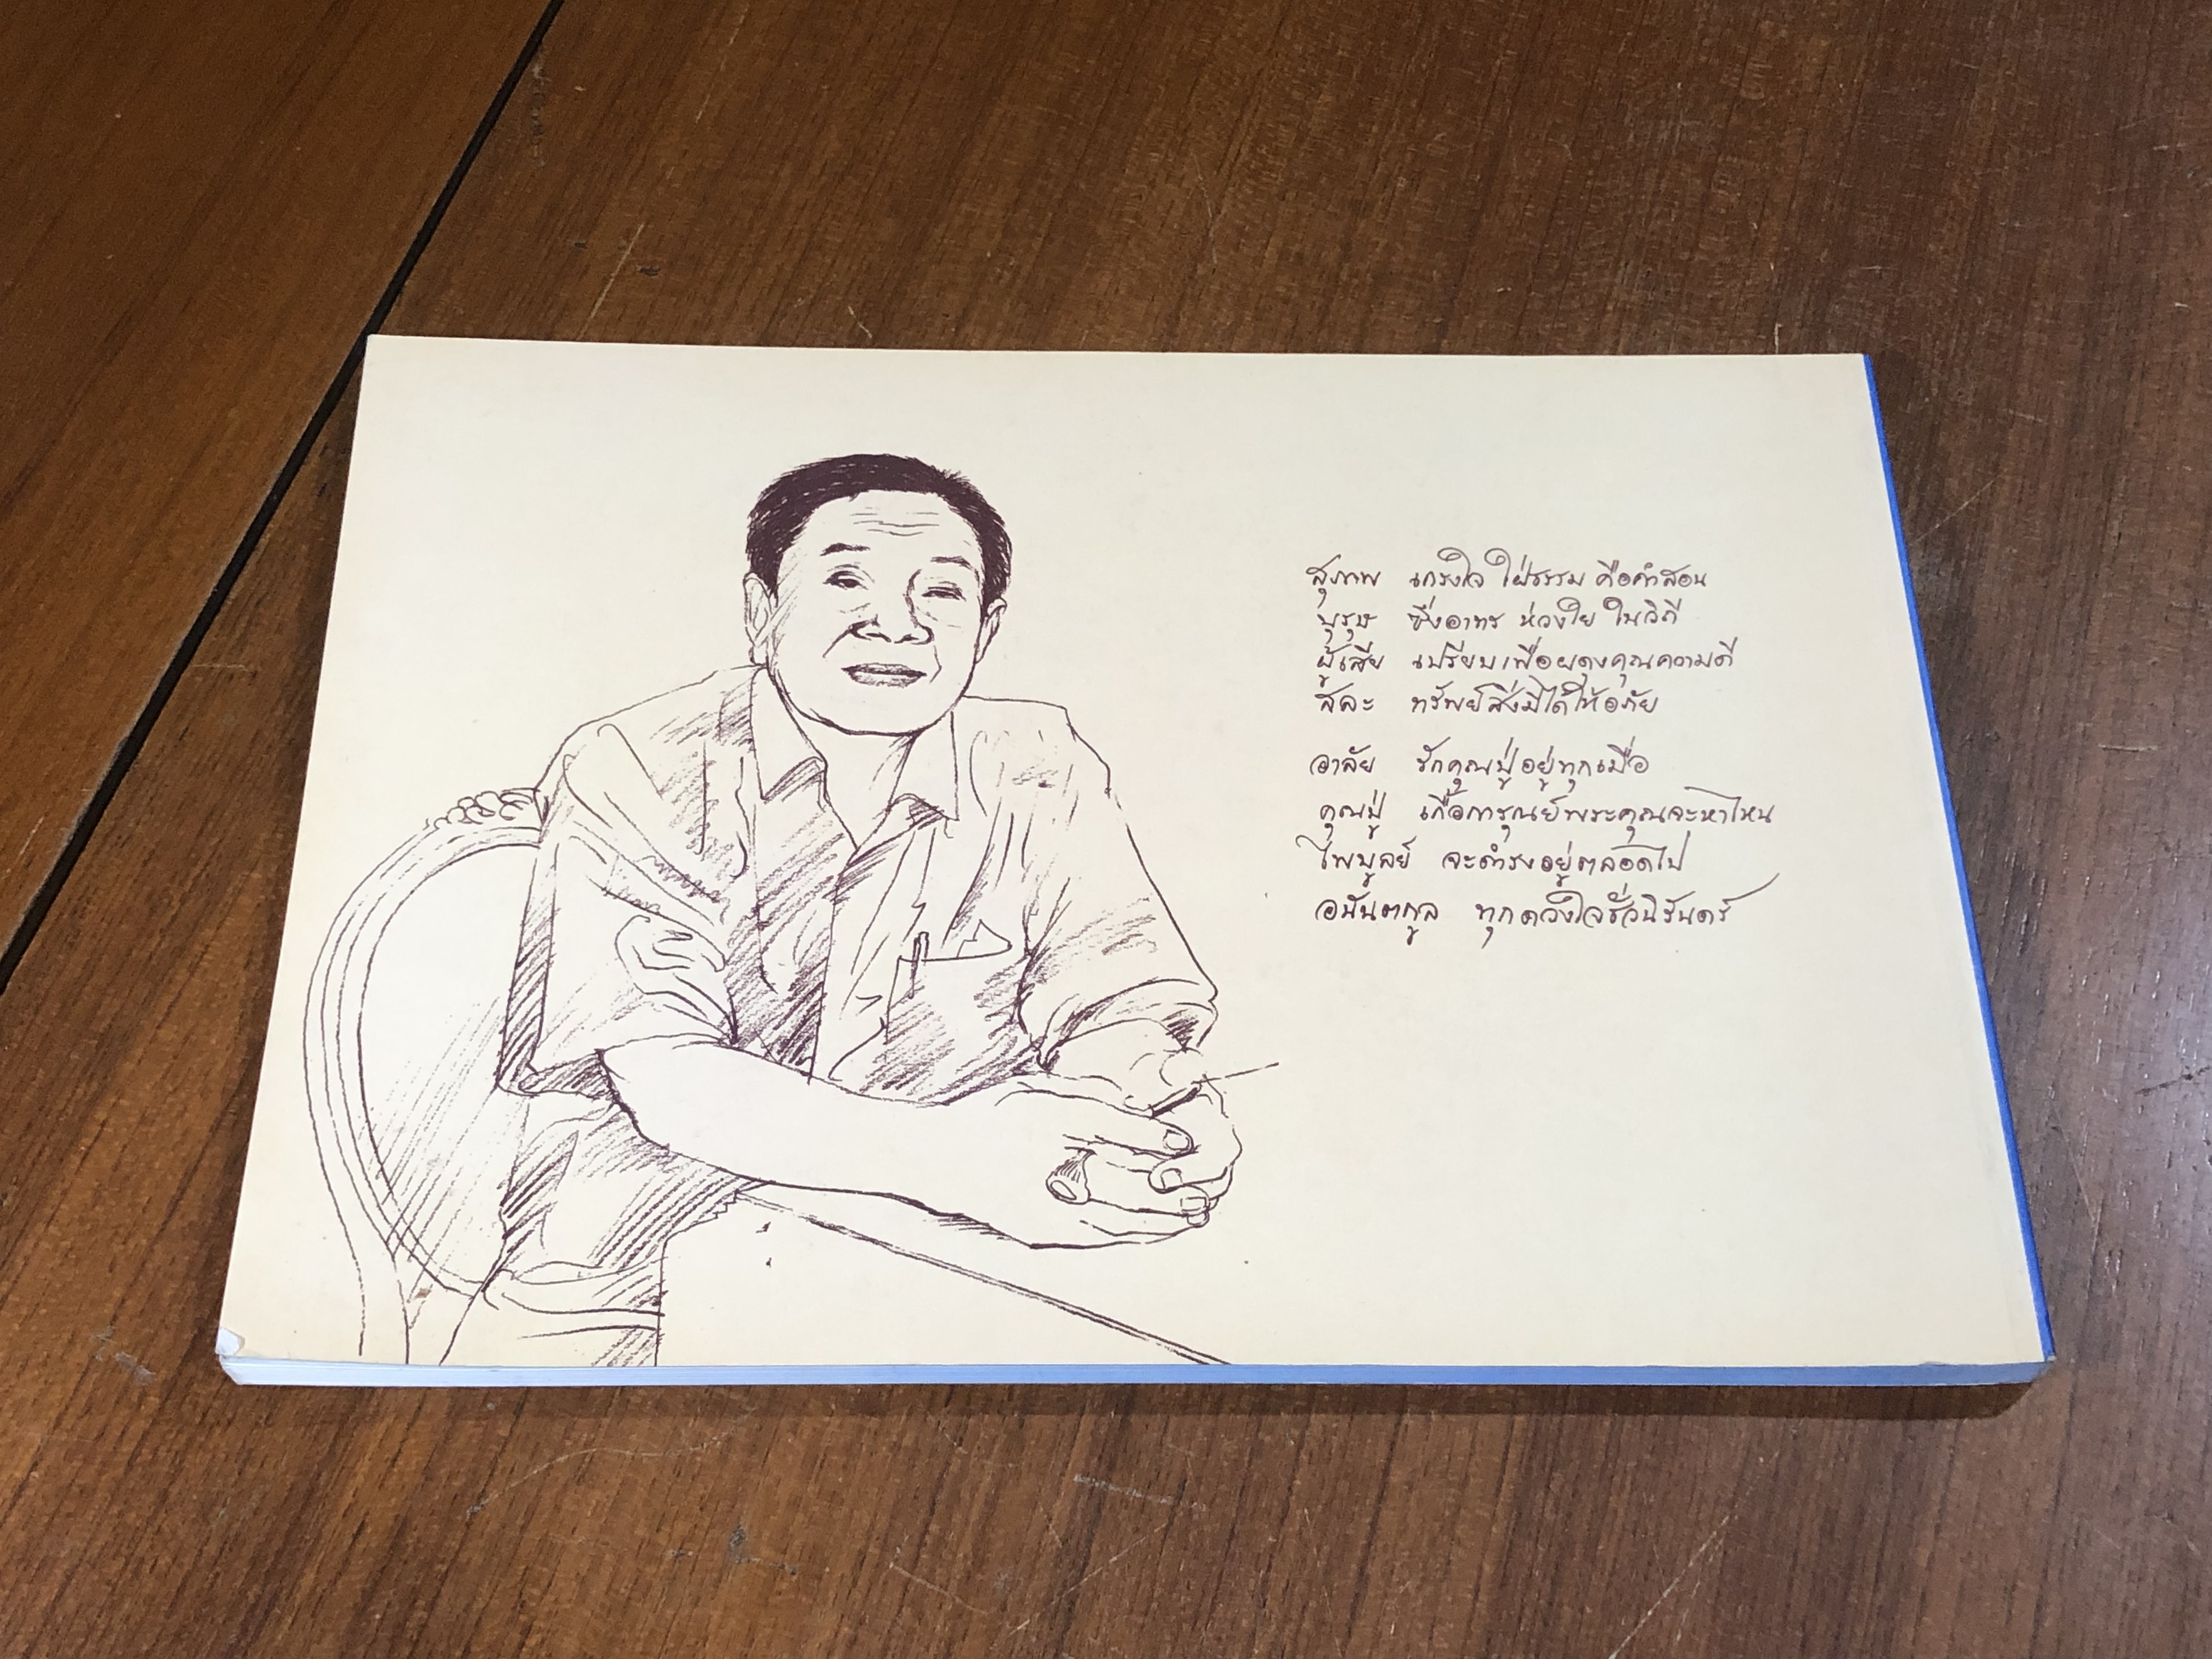 สุภาพ เกรงใจ ใฝ่ธรรม คือคำสอน
บุรุษ ซึ่งอาทร ห่วงใย ในวิถี
ผู้เสีย เปรียบเพื่อผดุงคุณความดี
สละ ทรัพย์สิ่งมีได้ให้อภัย
อาลัย รักคุณปู่อยู่ทุกเมื่อ
คุณปู่ เกื้อการุณย์พระคุณจะหาไหน
ไพบูลย์ จะดำรงอยู่ตลอดไป
อนันตกูล ทุกดวงใจชั่วนิรันดร์